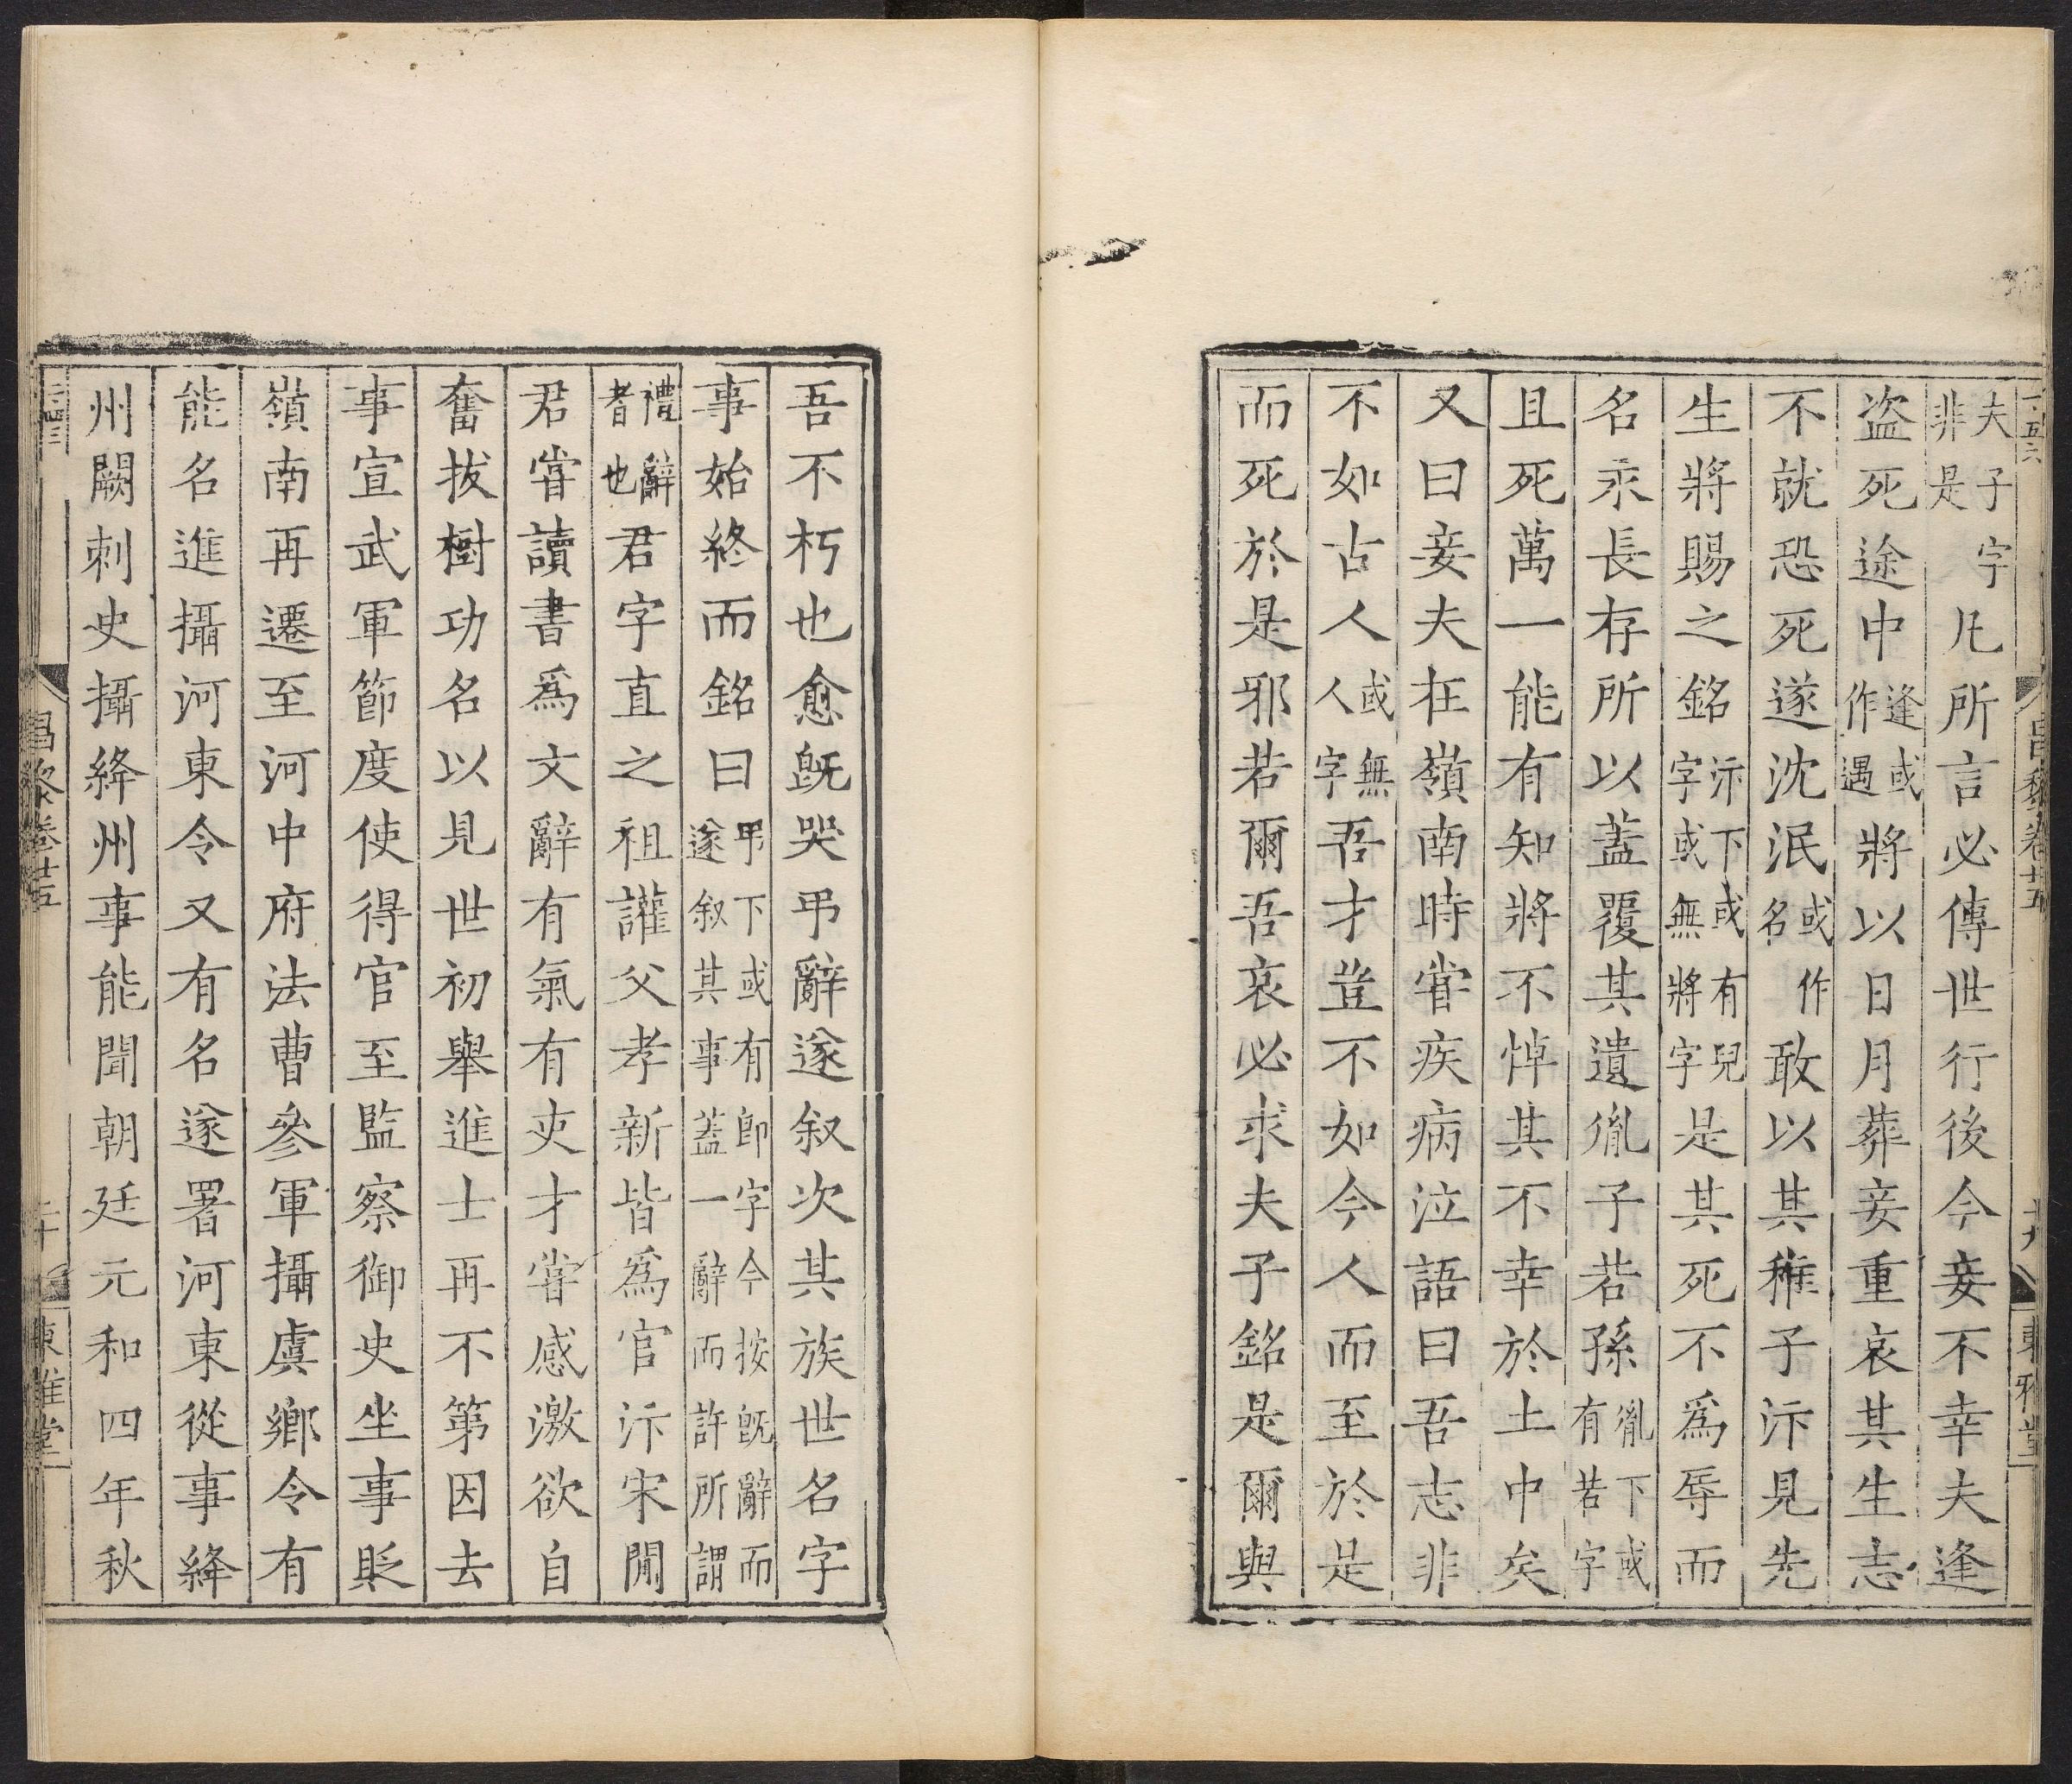 夫子字非是凡所言必傳世行後今妾不幸夫逢
盜死途中逢或作遇將以日月葬妾重哀其生志
不就恐死遂沈泯或作名敢以其稚子汴見先
生將賜之銘汴下或有兒字或無將字是其死不爲辱而
名永長存所以蓋覆其遺胤子若孫胤下或有若字
且死萬一能有知將不悼其不幸於土中矣
又曰妾夫在嶺南時甞疾病泣語曰吾志非
不如古人或無人字吾才豈不如今人而至於是
而死於是邪若爾吾哀必求夫子銘是爾與
吾不朽也愈旣哭弔辭遂叙次其族世名字
事始終而銘曰弔下或有有即字今按旣辭而遂叙其事蓋一辭而許所謂
禮辭者也君字直之祖讙父孝新皆爲官汴宋閒
君甞讀書爲文辭有氣有吏才甞感激欲自
奮拔樹功名以見世初舉進士再不第因去
事宣武軍節度使得官至監察御史坐事貶
嶺南再遷至河中府法曹參軍攝虞鄉令有
能名進攝河東令又有名遂署河東從事絳
州闕刺史攝絳州事能聞朝廷元和四年秋
昌黎卷廿五
二十
東雅堂